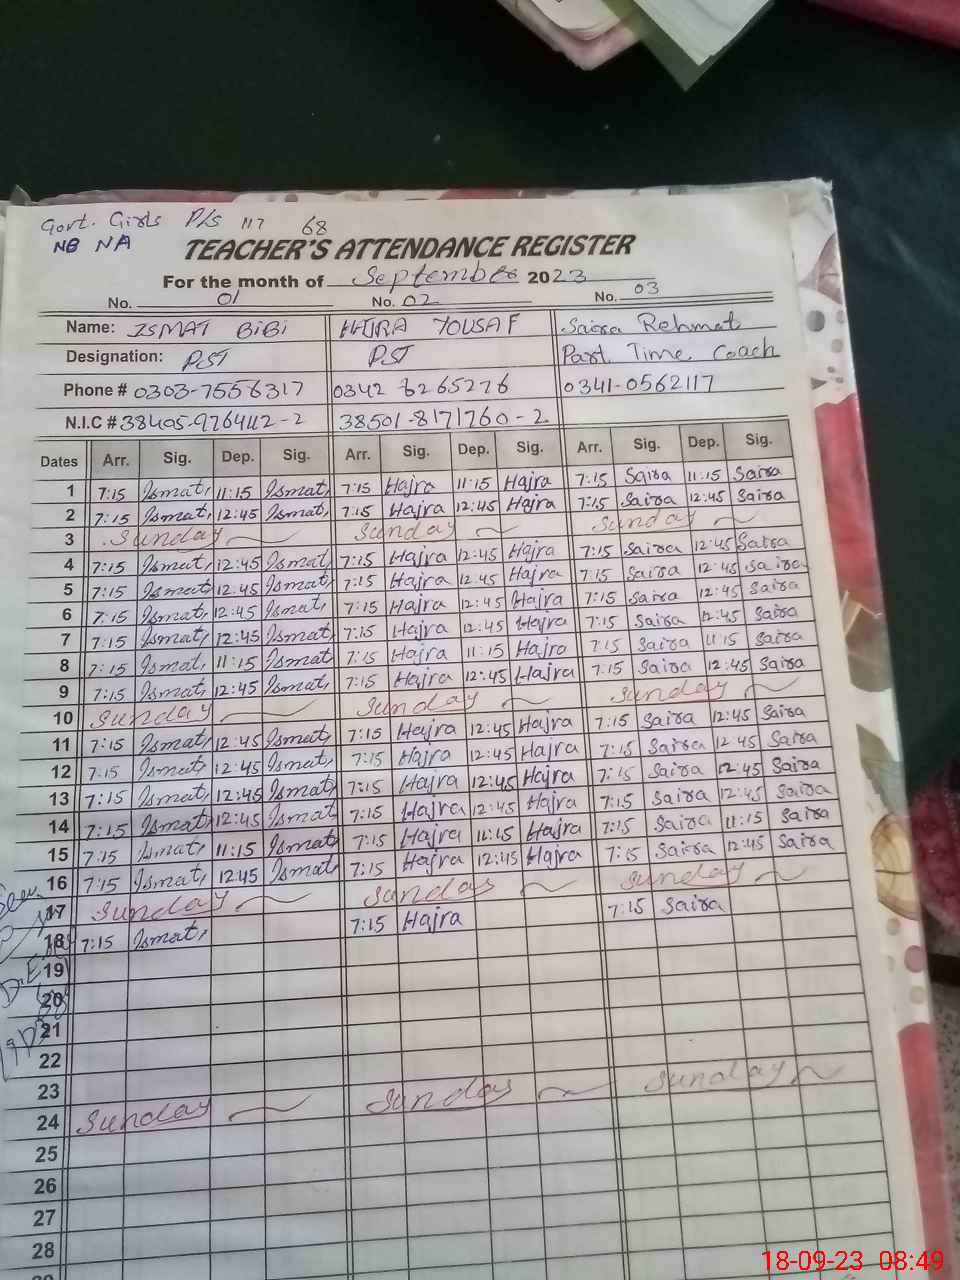 Govt. Girls P/s 117 68
NB NA
TEACHER'S ATTENDANCE REGISTER
For the month of September 2023
No. 01 No. 02 No. 03
Name: ISMAT BiBi HAJRA YOUSAF Saira Rehmat
Designation: PST PST Part Time Coach
Phone # 0303-7556317 0342 6265276 0341-0562117
N.I.C # 38405-9764112-2 38501-8171760-2
Dates Arr. Sig. Dep. Sig. Arr. Sig. Dep. Sig. Arr. Sig. Dep. Sig.
1 7:15 Ismat, 11:15 Ismat, 7:15 Hajra 11:15 Hajra 7:15 Saira 11:15 Saira
2 7:15 Ismat, 12:45 Ismat, 7:15 Hajra 12:45 Hajra 7:15 Saira 12:45 Saira
3 Sunday Sunday Sunday
4 7:15 Ismat, 12:45 Ismat, 7:15 Hajra 12:45 Hajra 7:15 Saira 12:45 Saira
5 7:15 Ismat, 12:45 Ismat, 7:15 Hajra 12:45 Hajra 7:15 Saira 12:45 Saira
6 7:15 Ismat, 12:45 Ismat, 7:15 Hajra 12:45 Hajra 7:15 Saira 12:45 Saira
7 7:15 Ismat, 12:45 Ismat, 7:15 Hajra 12:45 Hajra 7:15 Saira 12:45 Saira
8 7:15 Ismat, 11:15 Ismat, 7:15 Hajra 11:15 Hajra 7:15 Saira 11:15 Saira
9 7:15 Ismat, 12:45 Ismat, 7:15 Hajra 12:45 Hajra 7:15 Saira 12:45 Saira
10 Sunday Sunday Sunday
11 7:15 Ismat, 12:45 Ismat, 7:15 Hajra 12:45 Hajra 7:15 Saira 12:45 Saira
12 7:15 Ismat, 12:45 Ismat, 7:15 Hajra 12:45 Hajra 7:15 Saira 12:45 Saira
13 7:15 Ismat, 12:45 Ismat, 7:15 Hajra 12:45 Hajra 7:15 Saira 12:45 Saira
14 7:15 Ismat, 12:45 Ismat, 7:15 Hajra 12:45 Hajra 7:15 Saira 12:45 Saira
15 7:15 Ismat, 11:15 Ismat, 7:15 Hajra 11:15 Hajra 7:15 Saira 11:15 Saira
16 7:15 Ismat, 12:45 Ismat, 7:15 Hajra 12:45 Hajra 7:15 Saira 12:45 Saira
17 Sunday Sunday Sunday
18 7:15 Ismat, 7:15 Hajra 7:15 Saira
19
20
21
22
23
24 Sunday Sunday Sunday
25
26
27
28
18-09-23 08:49